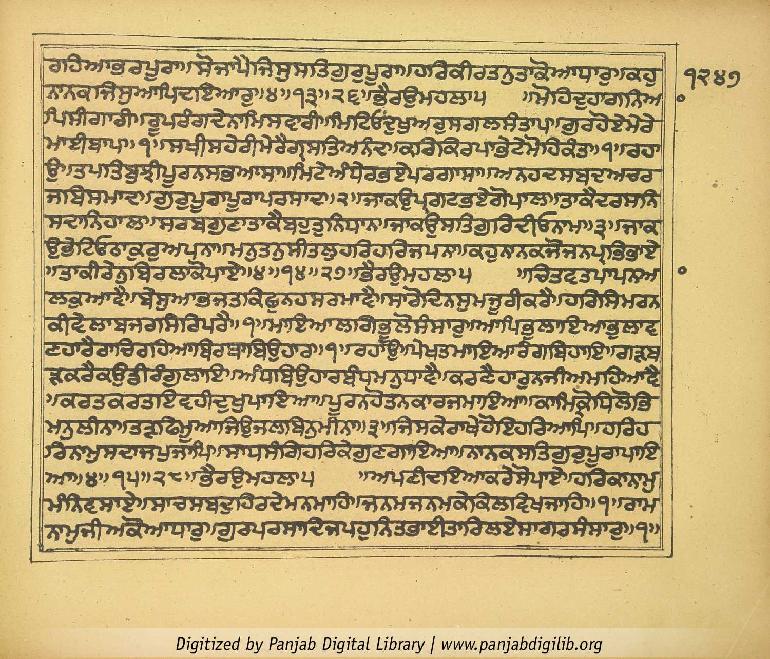 ਰਹਿਆਭਰਪੂਰਾ॥ਸੋਜਾਪੈਜਿਸੁਸਤਿਗੁਰੁਪੂਰਾ॥ਹਰਿਕੀਰਤਨੁਤਾਕੋਆਧਾਰੁ॥ਕਹੁ
੧੨੪੭
ਨਾਨਕਜਿਸੁਆਪਿਦਾਇਆਰੁ॥੪॥੧੩॥੨੬॥ਭੈਰਉਮਹਲਾ੫ ॥ਮੋਹਿਦੁਹਾਗਨਿਆ
ਪਿਸੀਗਾਰੀ॥ਰੂਪਰੰਗਦੇਨਾਮਿਸਵਾਰੀ॥ਮਿਟਿਓਦੁਖੁਅਰੁਸਗਲਸੰਤਾਪ॥ਗੁਰਹੋਏਮੇਰੇ
ਮਾਈਬਾਪ॥੧॥ਸਖੀਸਹੇਰੀਮੇਰੈਗ੍ਰਸਤਿਅਨੰਦ॥ਕਰਿਕਿਰਪਾਭੇਟੇਮੋਹਿਕੰਤ॥੧॥ਰਹਾ
ਉ॥ਤਪਤਿਬੁਝੀਪੂਰਨਸਭਆਸਾ॥ਮਿਟੇਅੰਧੇਰਭਏਪਰਗਾਸਾ॥ਅਨਹਦਸਬਦਅਚਰ
ਜਬਿਸਮਾਦ॥ਗੁਰੁਪੂਰਾਪੂਰਾਪਰਸਾਦ॥੨॥ਜਾਕਉਪ੍ਰਗਟਭਏਗੋਪਾਲ॥ਤਾਕੈਦਰਸਨਿ
ਸਦਾਨਿਹਾਲ॥ਸਰਬਗੁਣਾਤਾਕੈਬਹੁਤੁਨਿਧਾਨ॥ਜਾਕਉਸਤਿਗੁਰਿਦੀਓਨਾਮੁ॥੩॥ਜਾਕ
ਉਭੇਟਿਓਠਾਕੁਰੁਅਪਨਾ॥ਮਨੁਤਨੁਸੀਤਲੁਹਰਿਹਰਿਜਪਨਾ॥ਕਹੁਨਾਨਕਜੋਜਨਪ੍ਰਭਭਾਏ
॥ਤਾਕੀਰੇਨੁਬਿਰਲਾਕੋਪਾਏ॥੪॥੧੪॥੨੭॥ਭੈਰਉਮਹਲਾ੫ ॥ਚਿਤਵਤਪਾਪਨਆ
ਲਕੁਆਵੈ॥ਬੇਸੁਆਭਜਤਕਿਛੁਨਹਸਰਮਾਵੈ॥ਸਾਰੋਦਿਨਸੁਮਜੂਰੀਕਰੈ॥ਹਰਿਸਿਮਰਨ
ਕੀਵੇਲਾਬਜਰਸਿਰਿਪਰੈ॥੧॥ਮਾਇਆਲਗਿਭੂਲੋਸੰਸਾਰੁ॥ਆਪਿਭੁਲਾਇਆਭੁਲਾਵ
ਣਹਾਰੈਰਾਚਿਰਹਿਆਬਿਰਥਾਬਿਉਹਾਰ॥੧॥ਰਹਾਉ॥ਪੇਖਤਮਾਇਆਰੰਗਬਿਹਾਇ॥ਗੜਬ
ੜਕਰੈਕਉਡੀਰੰਗੁਲਾਇ॥ਅੰਧਾਬਿਉਹਾਰਬੰਧਮਨੁਧਾਵੈ॥ਕਰਣੈਹਾਰੁਨਜੀਅਮਹਿਆਵੈ
॥ਕਰਤਕਰਤਇਵਹੀਦੁਖੁਪਾਇਆ॥ਪੂਰਨਹੋਤਨਕਾਰਜਮਾਇਆ॥ਕਾਮਿਕ੍ਰੋਧਿਲੋਭਿ
ਮਨੁਲੀਨਾ॥ਤੜਫਿਮੂਆਜਿਉਜਲਬਿਨੁਮੀਨਾ॥੩॥ਜਿਸਕੇਰਾਖੇਹੋਇਹਰਿਆਪਿ॥ਹਰਿਹ
ਰਿਨਾਮੁਸਦਾਜਪੁਜਾਪਿ॥ਸਾਧਸੰਗਿਹਰਿਕੇਗੁਣਗਾਇਆ॥ਨਾਨਕਸਤਿਗੁਰੁਪੂਰਾਪਾਇ
ਆ॥੪॥੧੫॥੨੮॥ਭੈਰਉਮਹਲਾ੫ ॥ਅਪਣੀਦਇਆਕਰੇਸੋਪਾਏ॥ਹਰਿਕਾਨਾਮੁ
ਮੰਨਿਵਸਾਏ॥ਸਾਚਸਬਦੁਹਿਰਦੇਮਨਮਾਹਿ॥ਜਨਮਜਨਮਕੇਕਿਲਵਿਖਜਾਹਿ॥੧॥ਰਾਮ
ਨਾਮੁਜੀਅਕੋਆਧਾਰੁ॥ਗੁਰਪਰਸਾਦਿਜਪਹੁਨਿਤਭਾਈਤਾਰਿਲਏਸਾਗਰਸੰਸਾਰੁ॥੧॥
Digitized by Panjab Digital Library | www.panjabdigilib.org